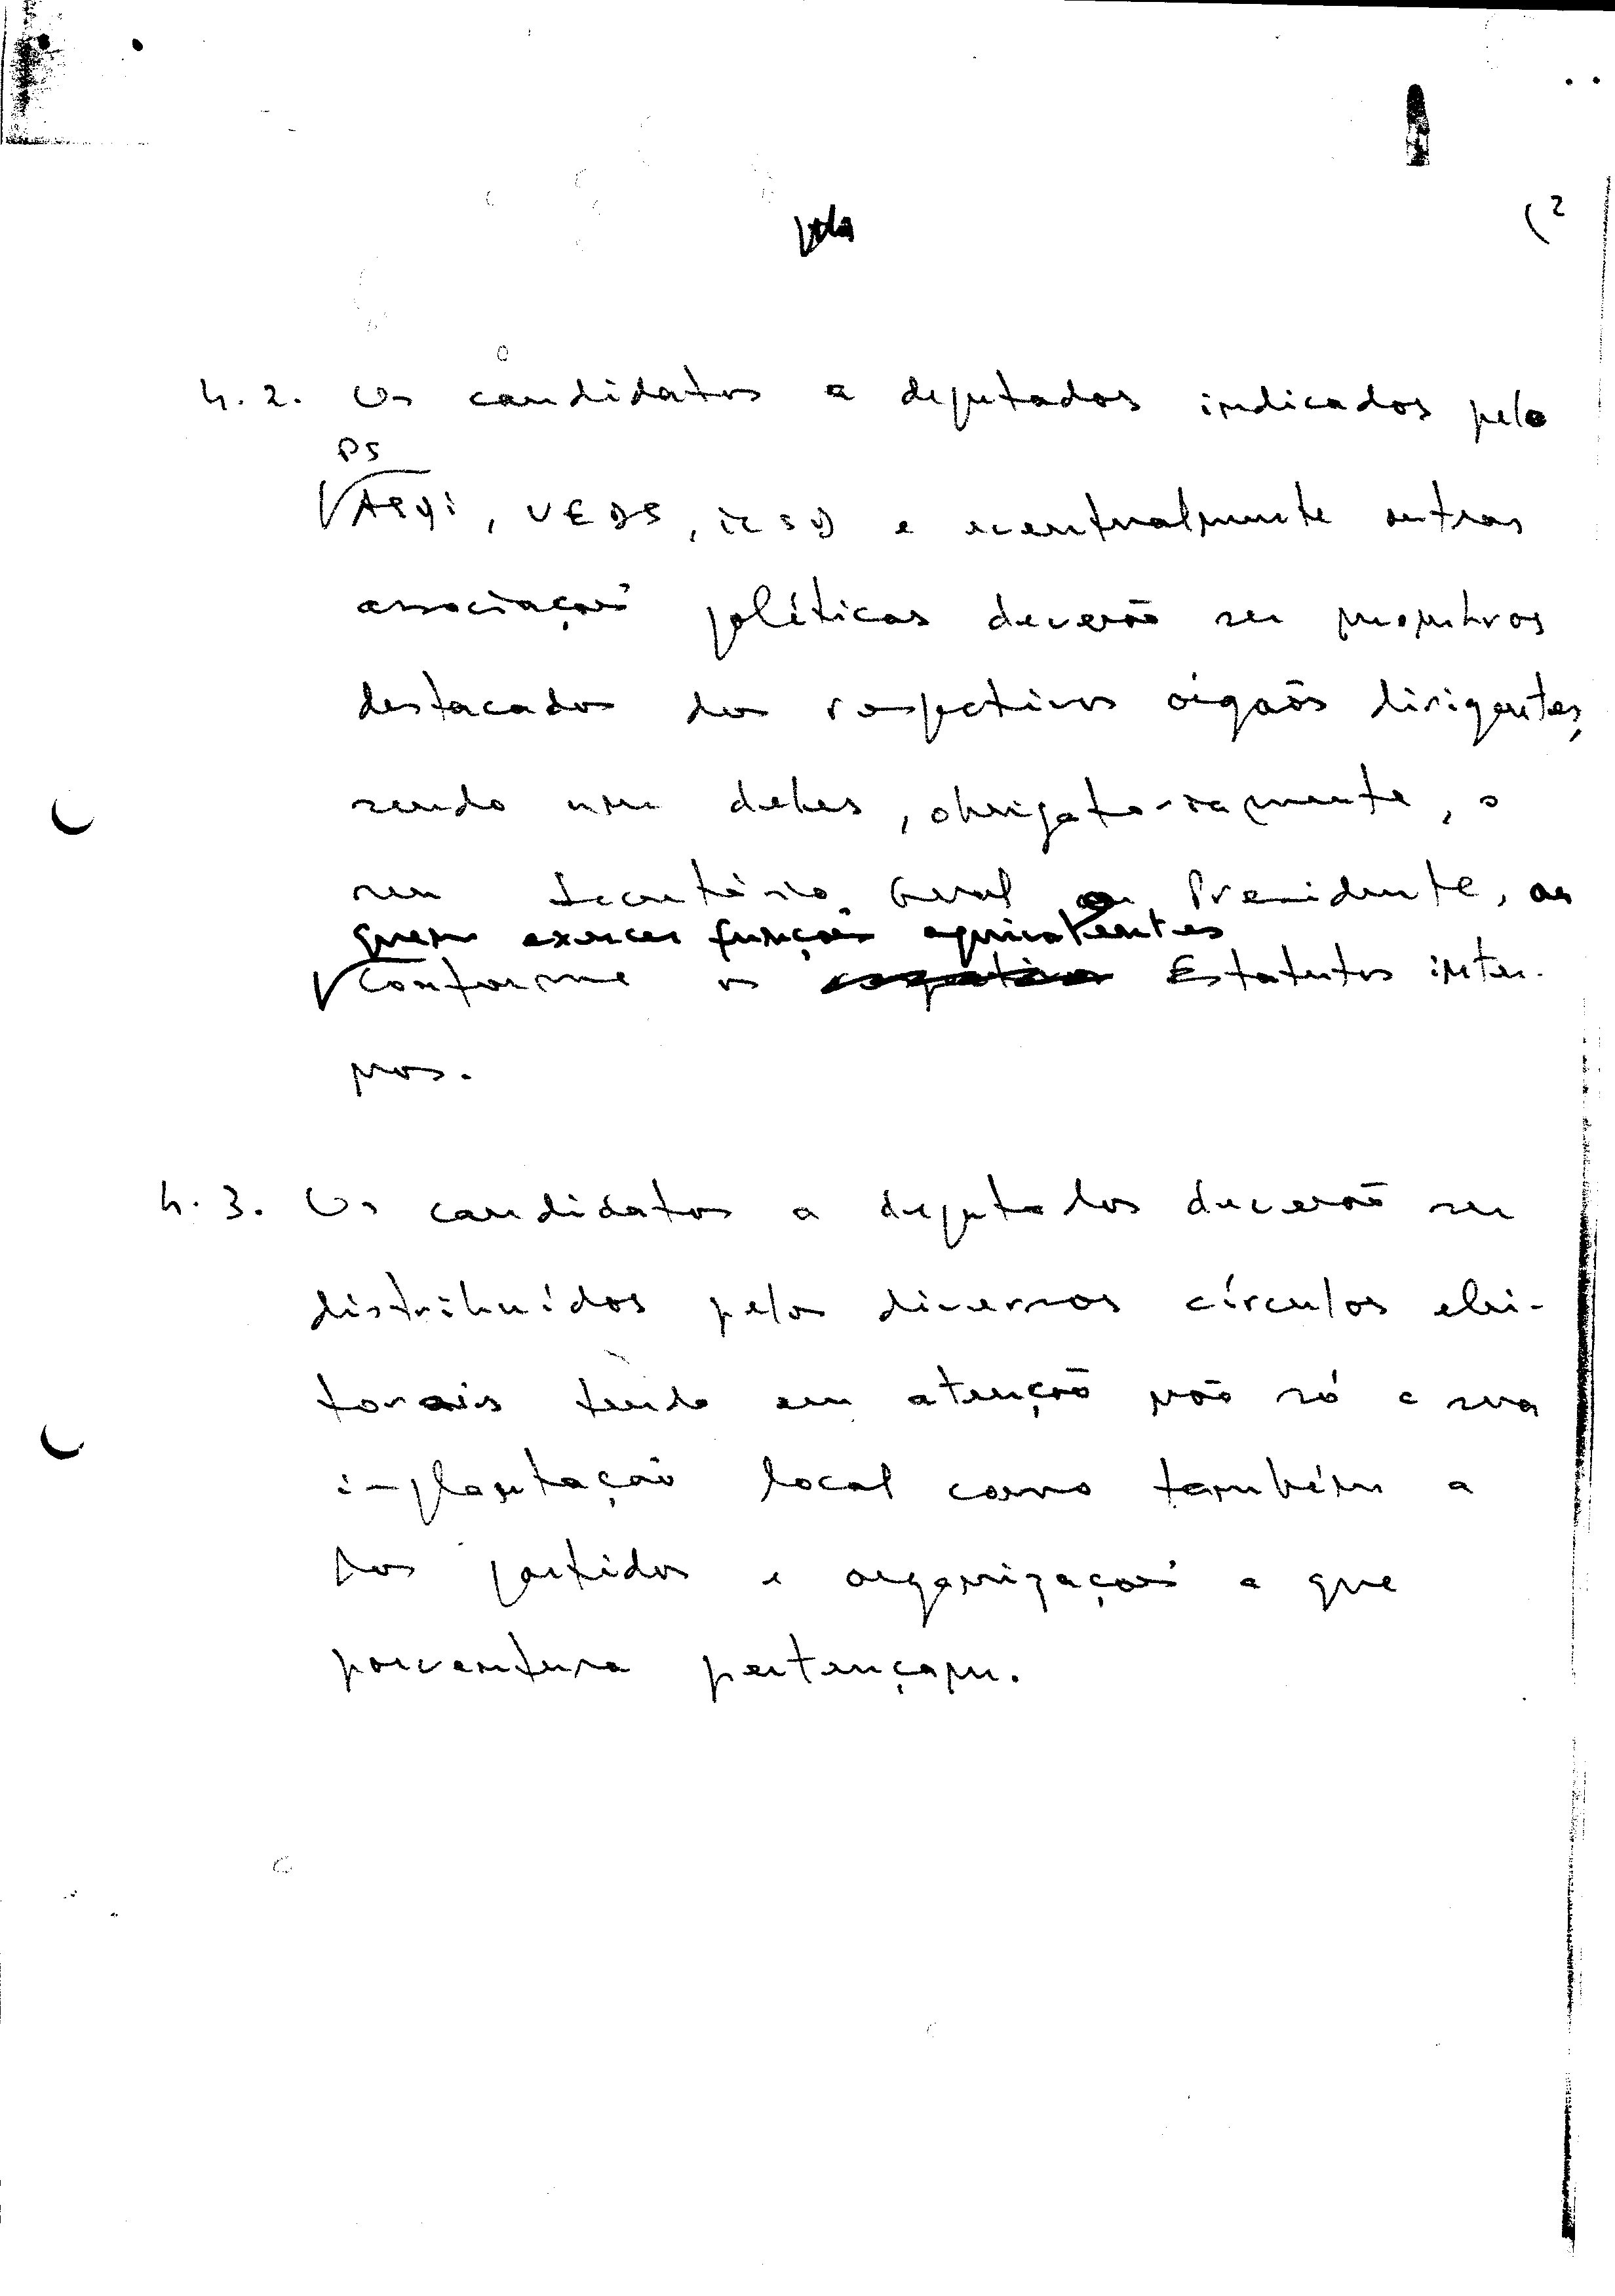 (2
4.2. Os candidatos a deputados indicados pelo
PS
ASDI, UEDS, e eventualmente outras
associações políticas deverão ser membros
destacados dos respectivos orgãos dirigentes,
sendo um deles, obrigatoriamente, o
seu Secretário Geral ou Presidente, ou
quem exercer funções equivalentes
conforme os Estatutos inter-
nos.
4.3. Os candidatos a deputados deverão ser
distribuídos pelos diversos círculos elei-
torais tendo em atenção não só a sua
implantação local como também a
dos partidos e organizações a que
porventura pertençam.